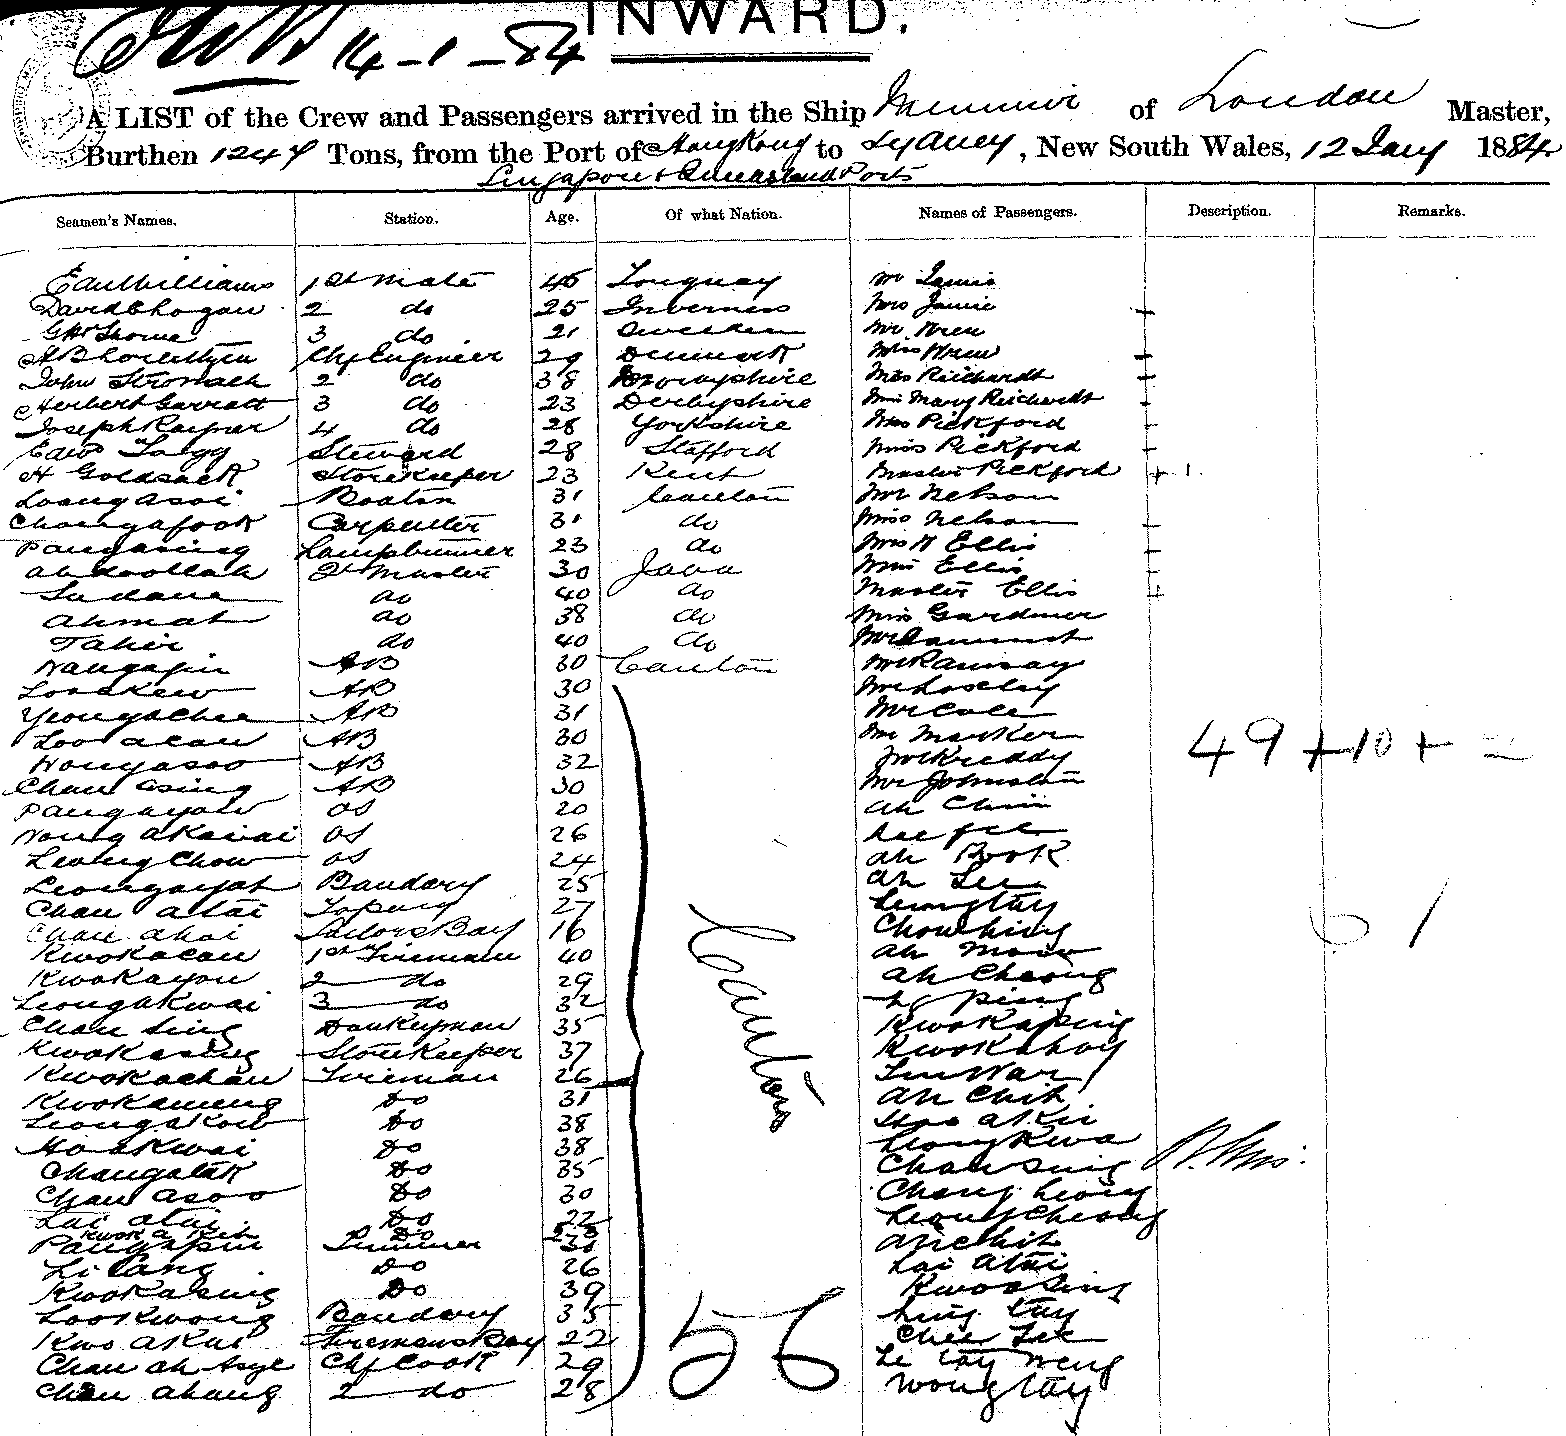 INWARD.
14-1-84
A LIST of the Crew and Passengers arrived in the Ship Menmuir of London Master,
Burthen 1247 Tons, from the Port of HongKong to Sydney, New South Wales, 12 Jany 1884
Singapore & Queensland Ports
Seamen's Names. Station. Age. Of what Nation. Names of Passengers. Description. Remarks.
Edw Williams 1st Mate 45 Torquay Mr Jamie
2 do 25 Inverness Mrs Jamie
3 do 21 Sweden Mr Wren
Chf Engineer 29 Denmark Miss Wren
John Stronach 2 do 38 Morayshire Miss Reichardt
Herbert Garratt 3 do 23 Derbyshire Miss Mary Reichardt
Joseph Rayner 4 do 28 Yorkshire Mrs Pickford
Edwd Tagg Steward 28 Stafford Miss Pickford
H Goldsack Storekeeper 23 Kent Master Pickford
Loongasoi Boatsn 31 Canton Mr Nelson
Chongafook Carpenter 31 do Miss Nelson
Pangasing Lamptrimmer 23 do Mrs W Ellis
Abdoollah Qt Master 30 Java Miss Ellis
do 40 do Master Ellis
Ahmat do 38 do Miss Gardiner
Tahir do 40 do Mr
Wangapin AB 30 Canton Mr Ramsay
Looakew AB 30 Mr Loseley
Yeongachee AB 31 Mr Cole
Loo acan AB 30 Mr Marker
Wongasoo AB 32 Mr Kreddy
Chan asing AB 30 Mr Johnston
49 + 10 + 2
Pangayow OS 20 Ah Chin
Wong akawai OS 26
Leong Chow OS 24 Ah Book
Leongayat Baudory 25 Ah Lee
Chan atai Topaz 27 Leongtay
Chan ahoi Sailors Boy 16 Chowhing
61
Kwokacan 1st Fireman 40 Ah Mow
Kwokayou 2 do 29 Ah Cheong
Leongakwai 3 do 32 Ping
Chan sing Donkeyman 35 Kwokaping
Kwokasing Storekeeper 37 Kwokahoy
Kwokachan Fireman 26
Canton
Kwokameng Do 31 Ah Chit
Leongakow Do 38 Hoo akin
Ho akwai Do 38 Leongkwa
Changatak Do 35 Chansing
Chan asoo Do 30 Chong Leong
Lai atai Do 22 Leong Cheong
Do 23
Pangapin Trimmer 30 Ah Chit
Li Cang Do 26 Lai Atai
Kwokasing Do 39 Kwoasing
Lookwong Baudory 35 Ling tay
56
Kwo akui Firemans Boy 22 Chee Lek
Chan ah Chf Cook 29 Le tay Weng
Chan ahang 2 do 28 Wong tay